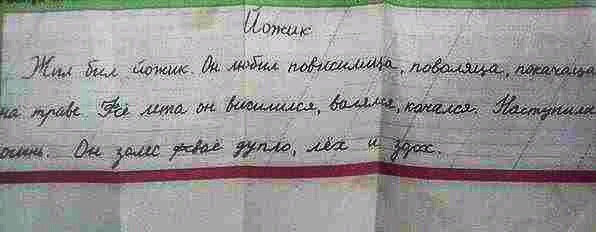 Йожик
Жыл был йожик. Он любил повисилица, поваляца, покачаца
на траве. Fсё лета он висилился, валялся, качался. Наступила
осинь. Он залес fсваё дупло, лёх и здох.